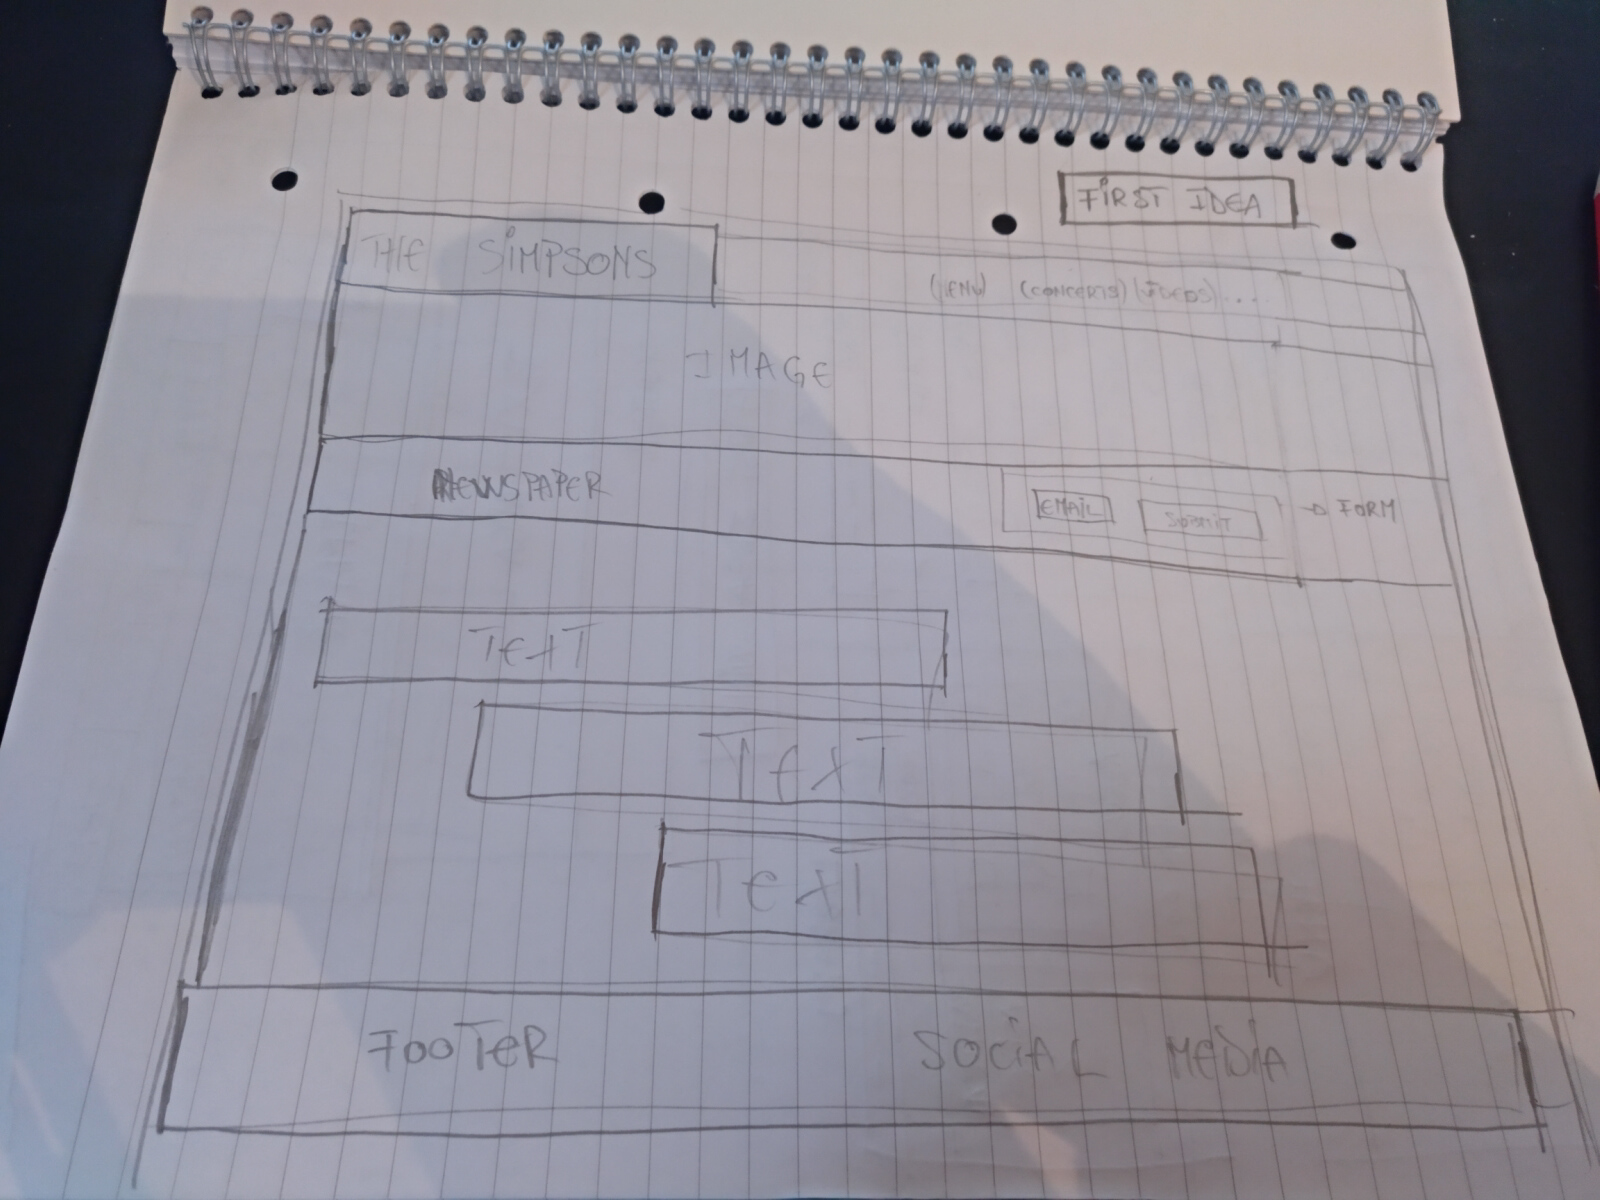 FIRST IDEA
THE SIMPSONS
(MENU) (CONCERTS) (VIDEOS) ....
IMAGE
NEWSPAPER
EMAIL SUBMIT → FORM
TEXT
TEXT
TEXT
FOOTER SOCIAL MEDIA